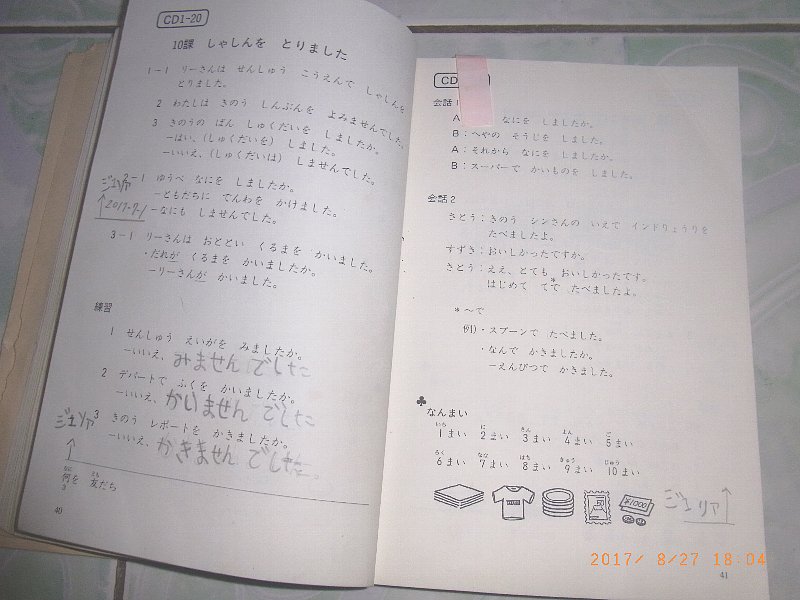 CD1-20
10課 しゃしんを とりました
1-1 リーさんは せんしゅう こうえんで しゃしんを
とりました。
2 わたしは きのう しんぶんを よみませんでした。
3 きのうの ばん しゅくだいを しましたか。
-はい、(しゅくだいを) しました。
-いいえ、(しゅくだいは) しませんでした。
2-1 ゆうべ なにを しましたか。
ジェリア
-ともだちに てんわを かけました。
2017-7-1
-なにも しませんでした。
3-1 リーさんは おととい くるまを かいました。
・だれが くるまを かいましたか。
-リーさんが かいました。
練習
1 せんしゅう えいがを みましたか。
-いいえ、みません でした
2 デパートで ふくを かいましたか。
-いいえ、かいません でした
3 きのう レポートを かきましたか。
ジェリア
-いいえ、かきません でした。
なに とも
何を 友だち
40
CD
会話1
A なにを しましたか。
B:へやの そうじを しました。
A:それから なにを しましたか。
B:スーパーで かいものを しました。
会話2
さとう:きのう シンさんの いえで インドりょうりを
たべましたよ。
すずき:おいしかったですか。
さとう:ええ、とても おいしかったです。
はじめて てで* たべましたよ。
*～で
例)・スプーンで たべました。
・なんで かきましたか。
-えんぴつで かきました。
♣
なんまい
いち に さん よん ご
1まい 2まい 3まい 4まい 5まい
ろく なな はち きゅう じゅう
6まい 7まい 8まい 9まい 10まい
¥1000
ジェリア
2017/ 8/27 18:04
41